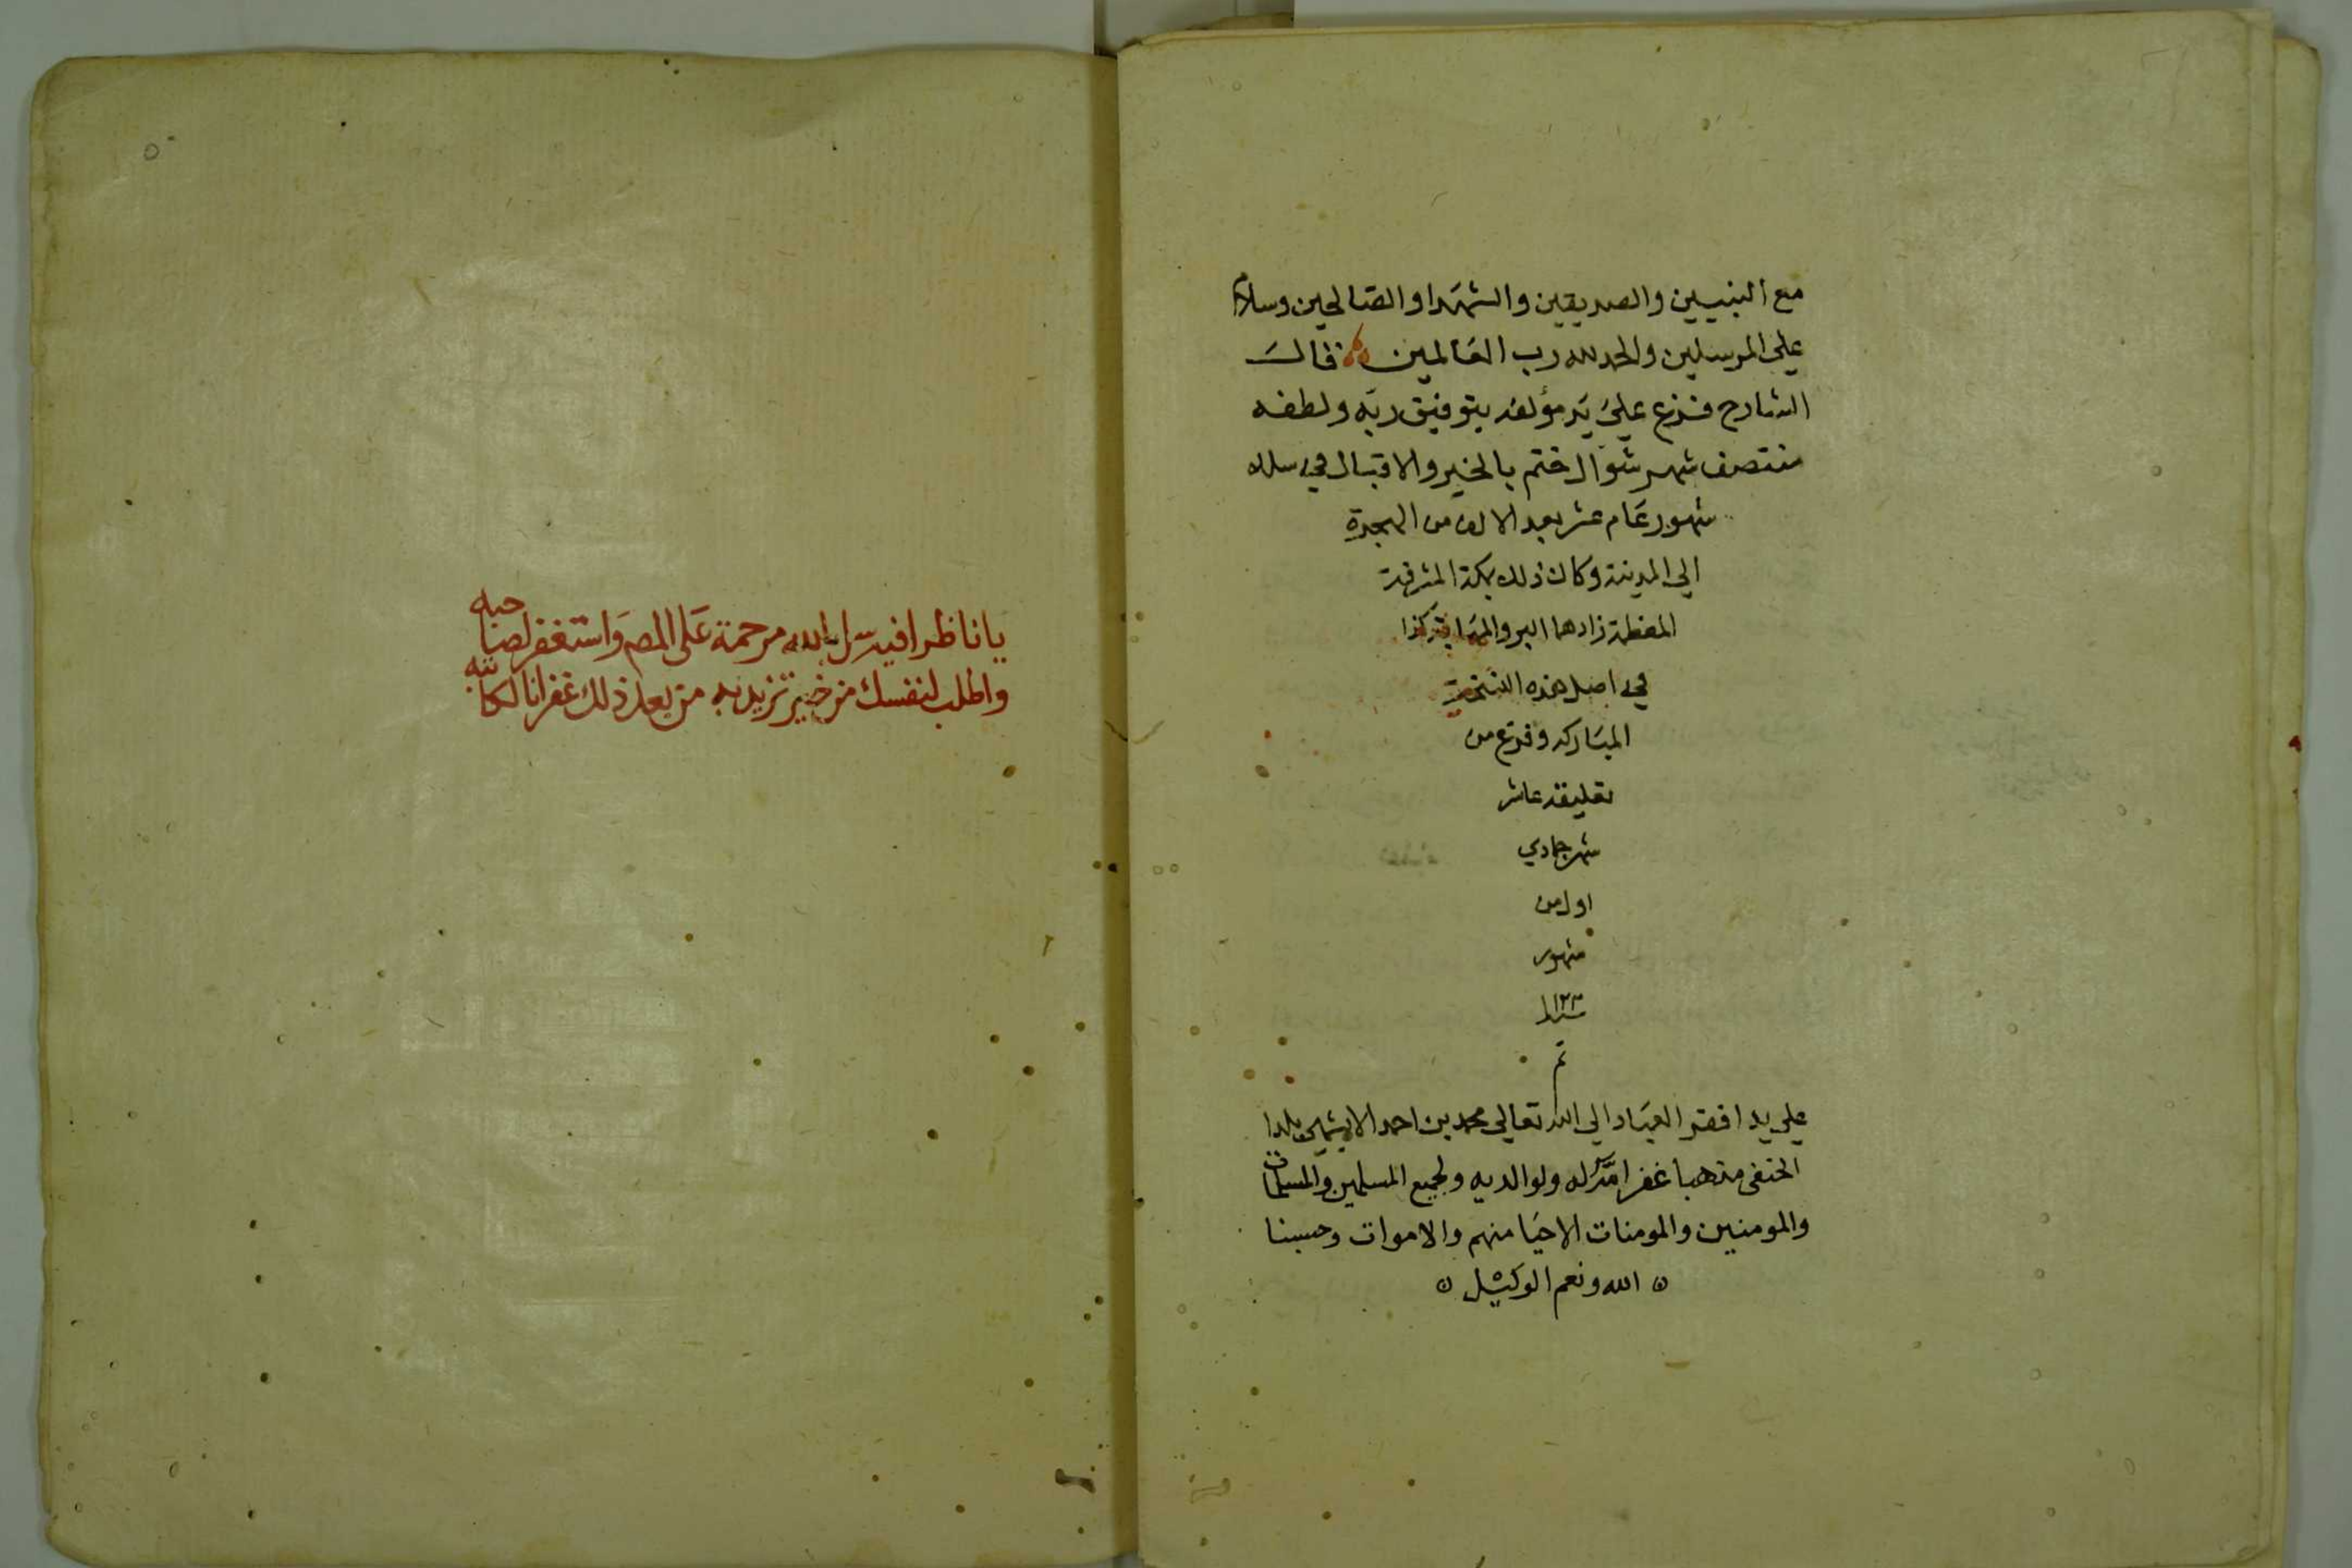 مع النبيين والصديقين والشهدا والصالحين وسلام
على المرسلين والحمد لله رب العالمين قال
الشارح فرغ على يد مؤلفه بتوفيق ربه ولطفه
منتصف شهر شوال ختم بالخير والاقبال في سلك
شهور عام عشر بعد الالف من الهجرة
الى المدينة وكان ذلك بمكة المشرفة
المعظمة زادها البر والمهابة كذا
في اصل هذه النسخة
المباركه وفرغ من
تعليقه عاشر
شهر جمادي
اول من
شهور
تم
على يد افقر العباد الى الله تعالى محمد بن احمد بلدا
الحنفي مذهبا غفر الله له ولوالديه ولجميع المسلمين والمسلمات
والمومنين والمومنات الاحيا منهم والاموات وحسبنا
الله ونعم الوكيل
يا ناظرا فيه سل الله مرحمة على المص واستغفر لصاحبه
واطلب لنفسك من خير تريد به من بعد ذلك غفرانا لكاتبه